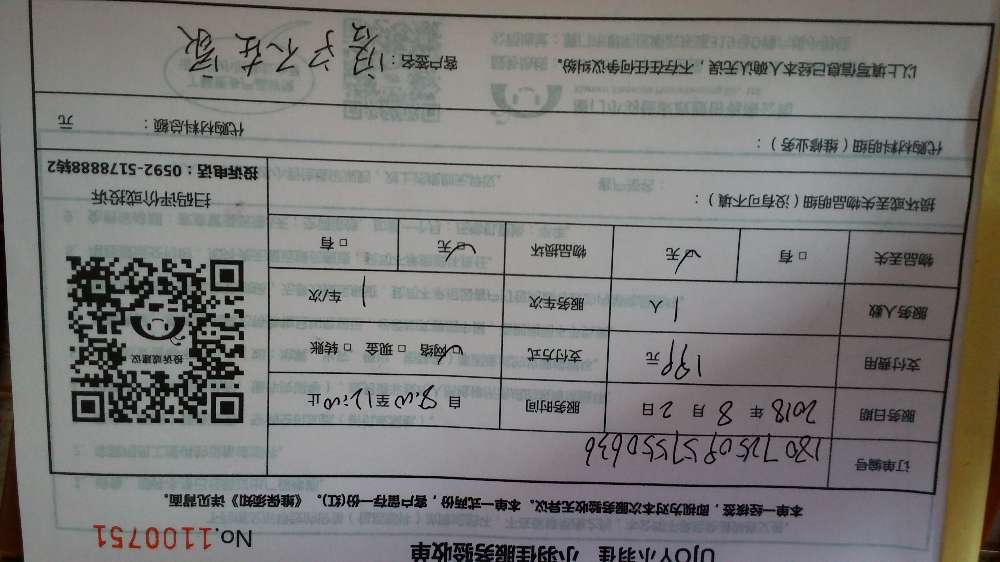 UJOY小羽佳 小羽佳服务验收单
No.1100751
一单一经核签，即视为对本次服务验收无异议。本单一式两份，客户留存一份(红)。《维保须知》详见背面。
订单编号
服务日期 2018 年 8 月 2 日 服务时间 自 8:00 至 12:00 止
支付费用 199 元 支付方式 ☑ 网络 □ 现金 □ 转账
服务人数 1 人 服务车次 1 车/次
物品丢失 □ 有 ☑ 无 物品损坏 ☑ 无 □ 有
投诉或建议
扫码评价或投诉
投诉电话：0592-5178888转2
损坏或丢失物品明细（没有可不填）：
代购材料明细（维修业务）：
代购材料总额： 元
以上填写信息已经本人确认无误，不存在任何争议纠纷。
客户签名：没字不在家